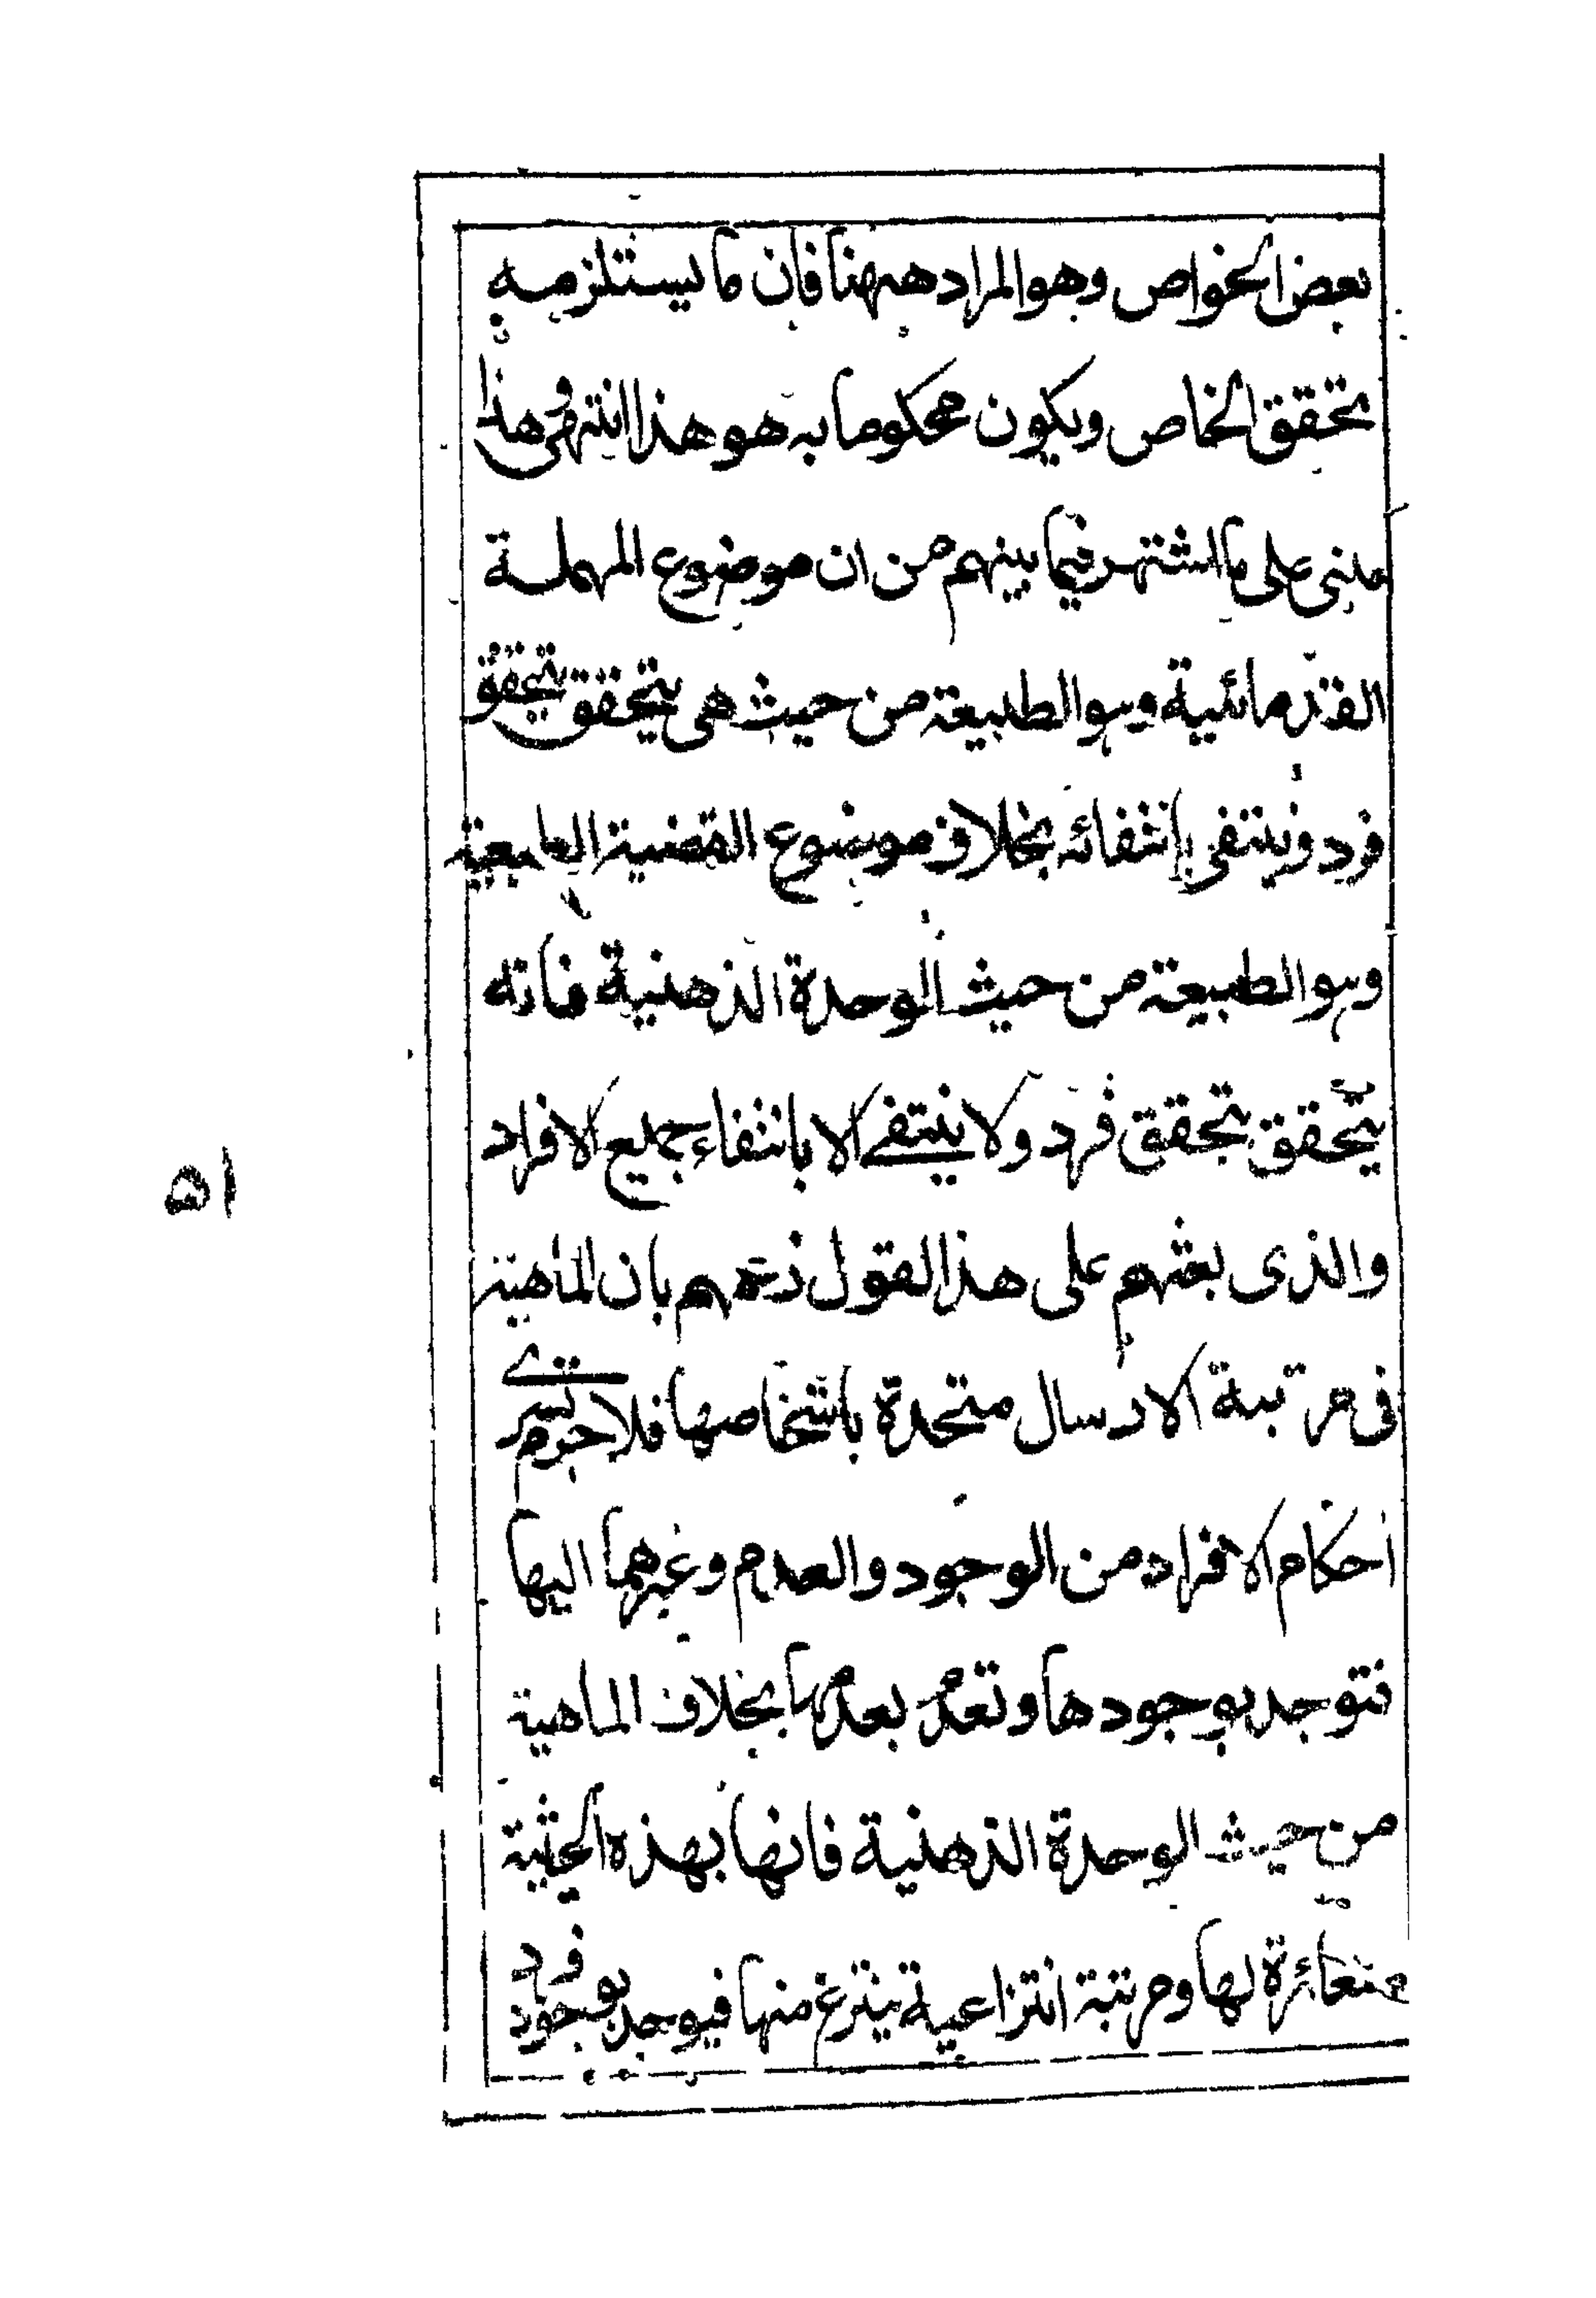 بعض الخواص وهو المراد ههنا فان ما يستلزمه
تحقق الخاص ويكون محكوما به هو هذا انتهى وهذا
مبنى على ما اشتهر فيما بينهم من ان موضوع المهملة
القدمائية وهو الطبيعة من حيث هى يتحقق بتحقق
فرد وينتفى بانتفائه بخلاف موضوع القضية الطبعية
وهو الطبيعة من حيث الوحدة الذهنية فانه
يتحقق بتحقق فرد ولا ينتفى الا بانتفاء جميع الافراد
والذى بعثهم على هذا القول زعمهم بان الماهية
فى مرتبة الارسال متحدة باشخاصها فلا جرم تسرى
احكام الافراد من الوجود والعدم وغيرهما اليها
فتوجد بوجودها وتعدم بعدمها بخلاف الماهية
من حيث الوحدة الذهنية فانها بهذه الحيثية
متغائرة لها ومرتبة انتزاعية ينتزع منها فيوجد بوجود فرد
٥١